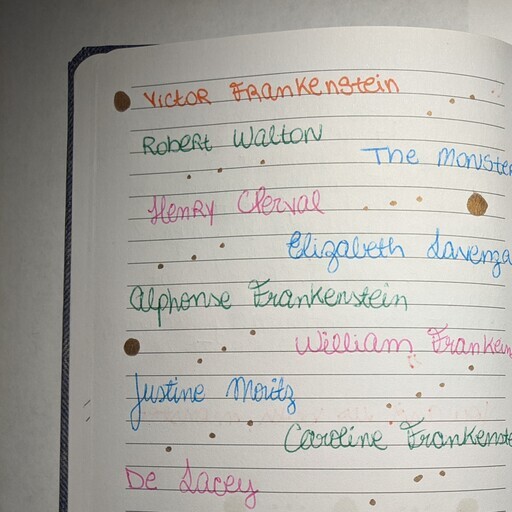 Victor Frankenstein
Robert Walton
The Monster
Henry Clerval
Elizabeth Lavenza
Alphonse Frankenstein
William Franken
Justine Moritz
Caroline Frankenste
De Lacey